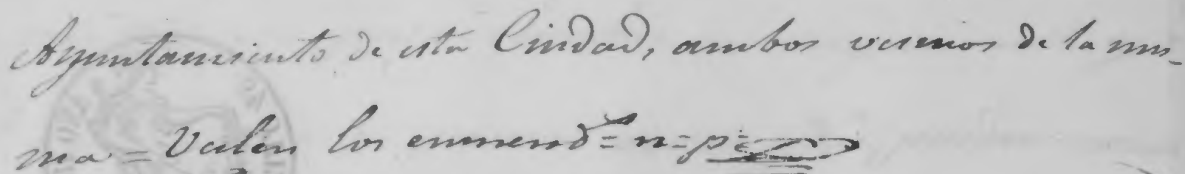 Ayuntamiento de esta Ciudad, ambos vesinos de la mis-
ma = Valen los enmend.s = n = p =